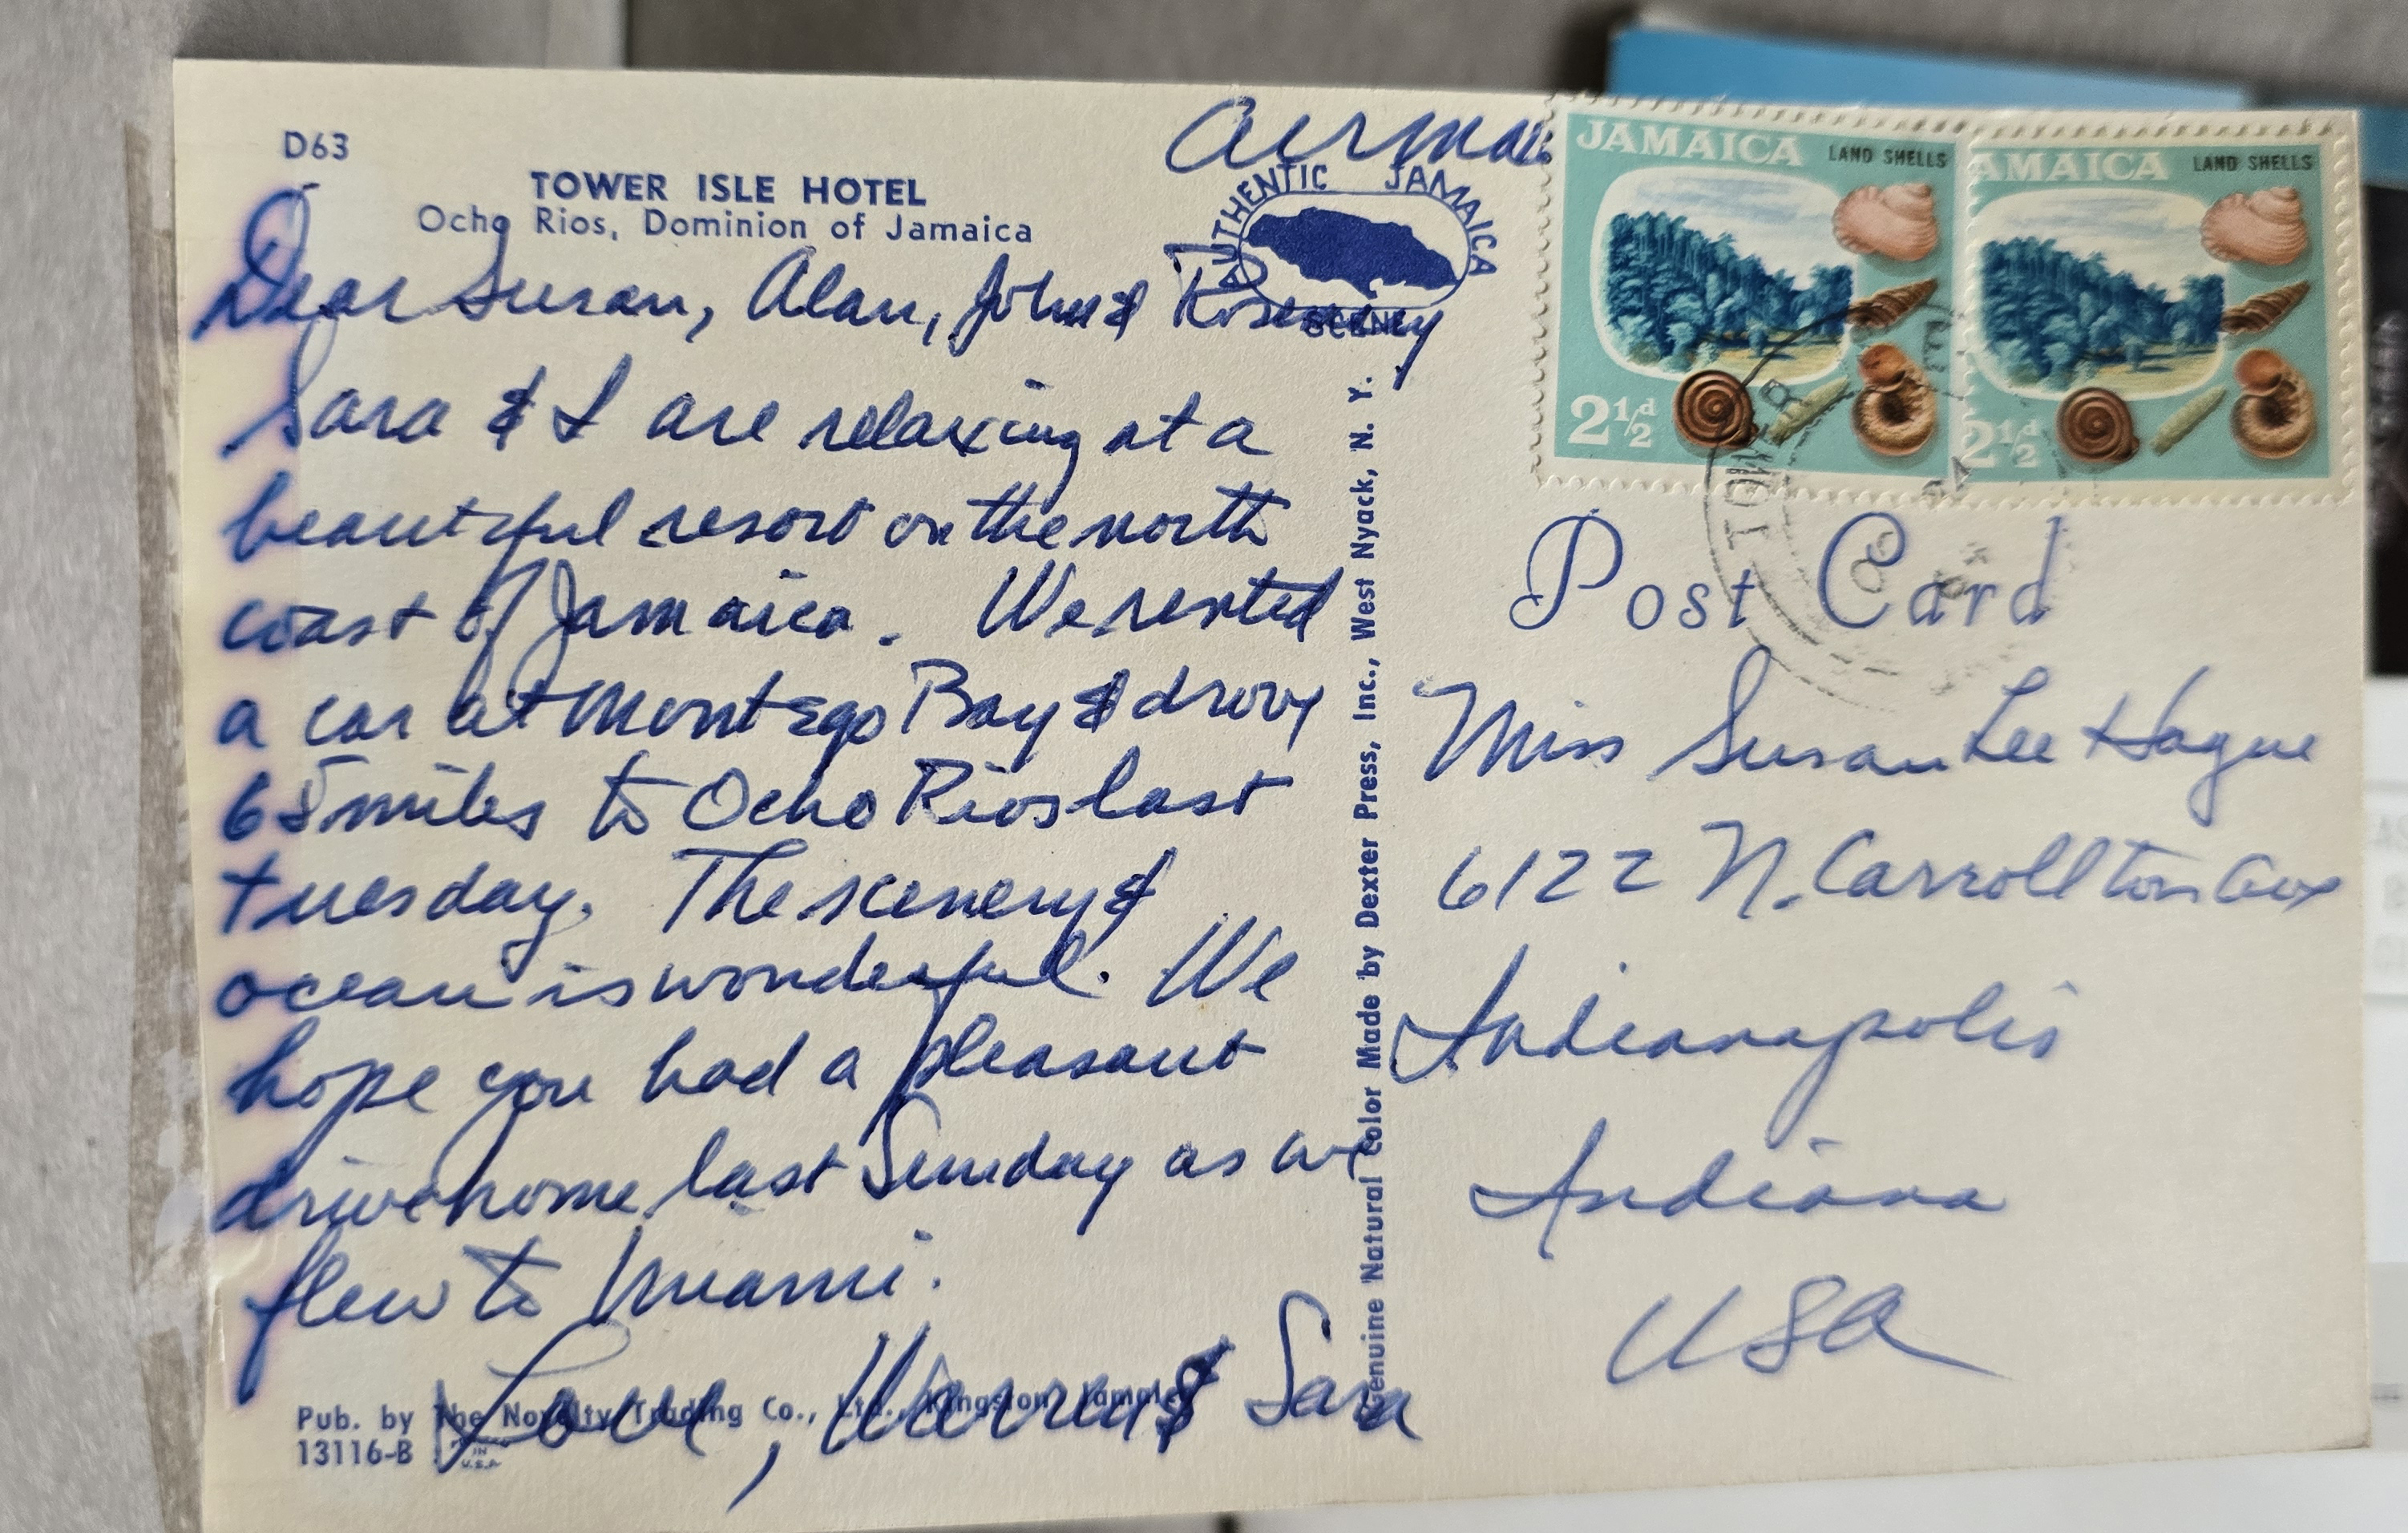 D63
TOWER ISLE HOTEL
Ocho Rios, Dominion of Jamaica
Airmail
AUTHENTIC JAMAICA
SCENE
JAMAICA LAND SHELLS
2½d
JAMAICA LAND SHELLS
2½d
Dear Susan, Alan, John & Rosemary
Sara & I are relaxing at a
beautiful resort on the north
coast of Jamaica. We rented
a car at Montego Bay & drove
65 miles to Ocho Rios last
tuesday. The scenery &
ocean is wonderful. We
hope you had a pleasant
drive home last Sunday as we
flew to Miami.
Love, & Sara
Pub. by The Novelty Trading Co., Ltd., Kingston, Jamaica
13116-B
IN
U.S.A.
Genuine Natural Color Made by Dexter Press, Inc., West Nyack, N. Y.
Post Card
Miss Susan Lee Hague
6122 N. Carrollton Ave
Indianapolis
Indiana
USA